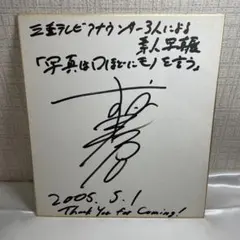 三重テレビアナウンサー3人による
素人写真展
「写真は口ほどにモノを言う」
2005.5.1
Thank You For Coming!